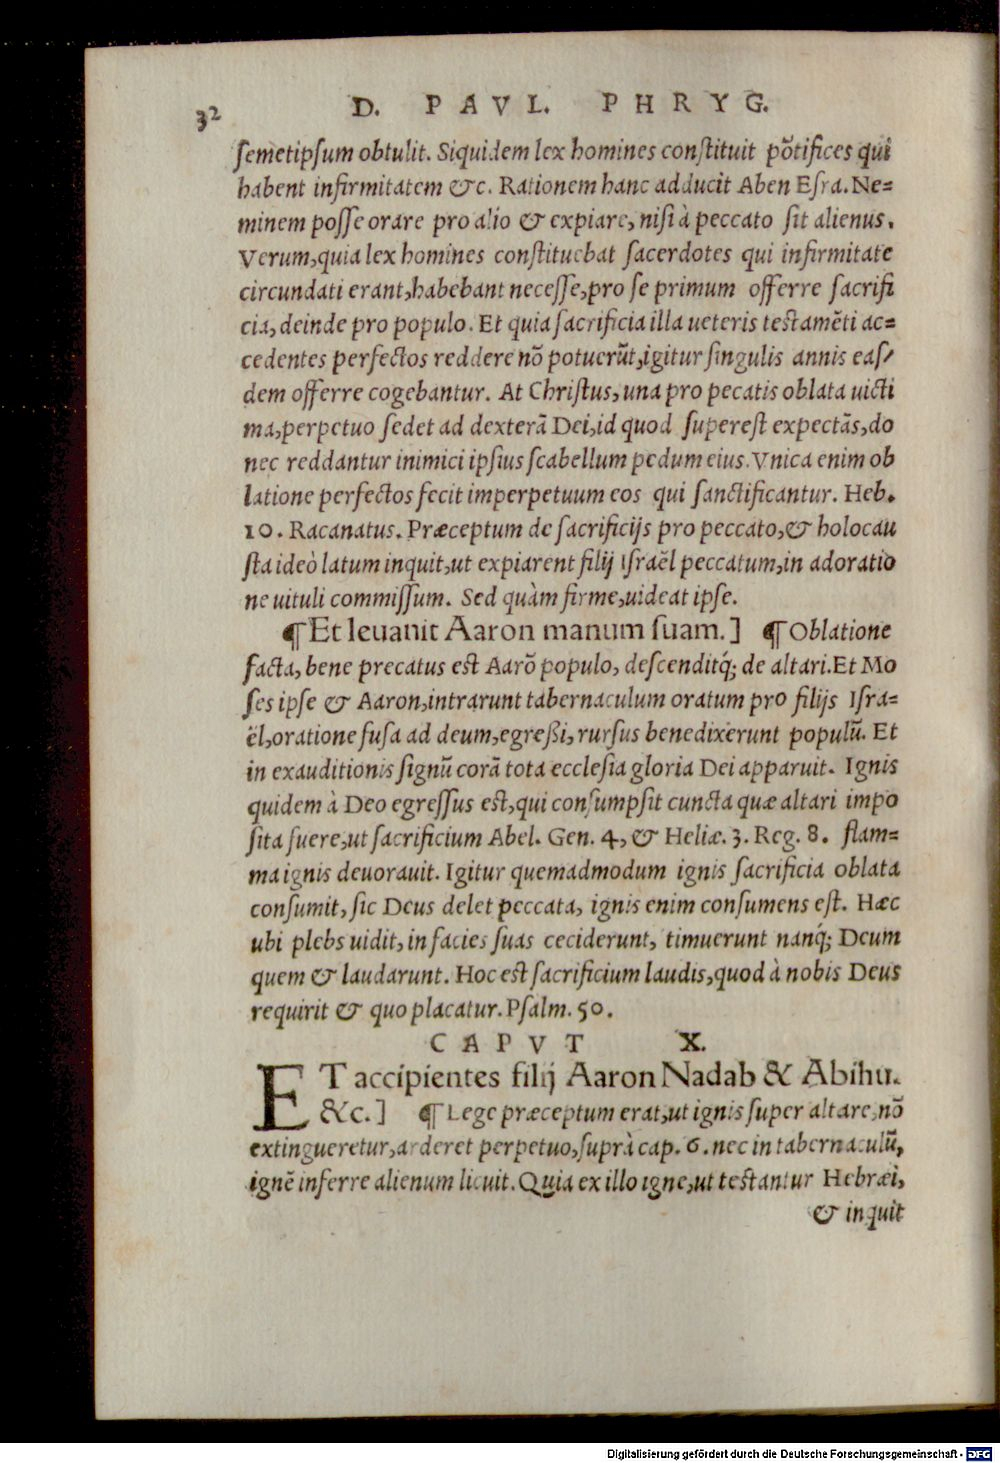 32 D. PAVL. PHRYG.
semetipsum obtulit. Siquidem lex homines constituit põtifices qui
habent infirmitatem &c. Rationem hanc adducit Aben Esra. Ne=
minem posse orare pro alio & expiare, nisi à peccato sit alienus.
Verum, quia lex homines constituebat sacerdotes qui infirmitate
circundati erant, habebant necesse, pro se primum offerre sacrifi
cia, deinde pro populo. Et quia sacrificia illa ueteris testamẽti ac=
cedentes perfectos reddere nõ potuerũt, igitur singulis annis eas/
dem offerre cogebantur. At Christus, una pro pecatis oblata uicti
ma, perpetuo sedet ad dexterã Dei, id quod superest expectãs, do
nec reddantur inimici ipsius scabellum pedum eius. Vnica enim ob
latione perfectos fecit imperpetuum eos qui sanctificantur. Heb.
10. Racanatus. Præceptum de sacrificijs pro peccato, & holocau
sta ideò latum inquit, ut expiarent filij Israẽl peccatum, in adoratio
ne uituli commissum. Sed quàm firme, uideat ipse.
¶ Et leuauit Aaron manum suam.] ¶ Oblatione
facta, bene precatus est Aarõ populo, descenditq́; de altari. Et Mo
ses ipse & Aaron, intrarunt tabernaculum oratum pro filijs Isra=
ël, oratione fusa ad deum, egreßi, rursus benedixerunt populũ. Et
in exauditionis signũ corã tota ecclesia gloria Dei apparuit. Ignis
quidem à Deo egressus est, qui consumpsit cuncta quæ altari impo
sita fuere, ut sacrificium Abel. Gen. 4, & Heliæ. 3. Reg. 8. flam=
ma ignis deuorauit. Igitur quemadmodum ignis sacrificia oblata
consumit, sic Deus delet peccata, ignis enim consumens est. Hæc
ubi plebs uidit, in facies suas ceciderunt, timuerunt nanq́; Deum
quem & laudarunt. Hoc est sacrificium laudis, quod à nobis Deus
requirit & quo placatur. Psalm. 50.
CAPVT X.
ET accipientes filij Aaron Nadab & Abihu.
&c.] ¶ Lege præceptum erat, ut ignis super altare, nõ
extingueretur, arderet perpetuo, suprà cap. 6. nec in tabernaculũ,
ignẽ inferre alienum licuit. Quia ex illo igne, ut testantur Hebræi,
& inquit
Digitalisierung gefördert durch die Deutsche Forschungsgemeinschaft - DFG